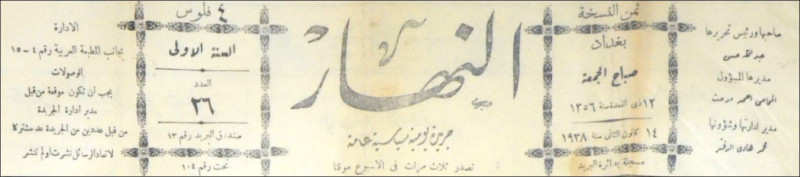 صاحبها ورئيس تحريرها
عبدالله حسن
مديرها المسؤول
المحامي احمد
مدير ادارتها وشؤونها
محمد هادي الدفتر
ثمن النسخة
٤ فلوس
بغداد
صباح الجمعة
١٢ ذي القعدة سنة ١٣٥٦
١٤ كانون الثاني سنة ١٩٣٨
مسجلة بدائرة البريد
النهار
جريدة يومية سياسية عامة
تصدر ثلاث مرات في الاسبوع موقتا
السنة الاولى
العدد
٢٦
صندوق البريد رقم ٤٣
تحت رقم ١٠٤
الادارة
بجانب المطبعة العربية رقم ٤-١٥
الوصولات
يجب ان تكون موقعة من قبل
مدير ادارة الجريدة
من قبل عددين من الجريدة عد مشتركا
لا تعاد الرسائل نشرت او لم تنشر